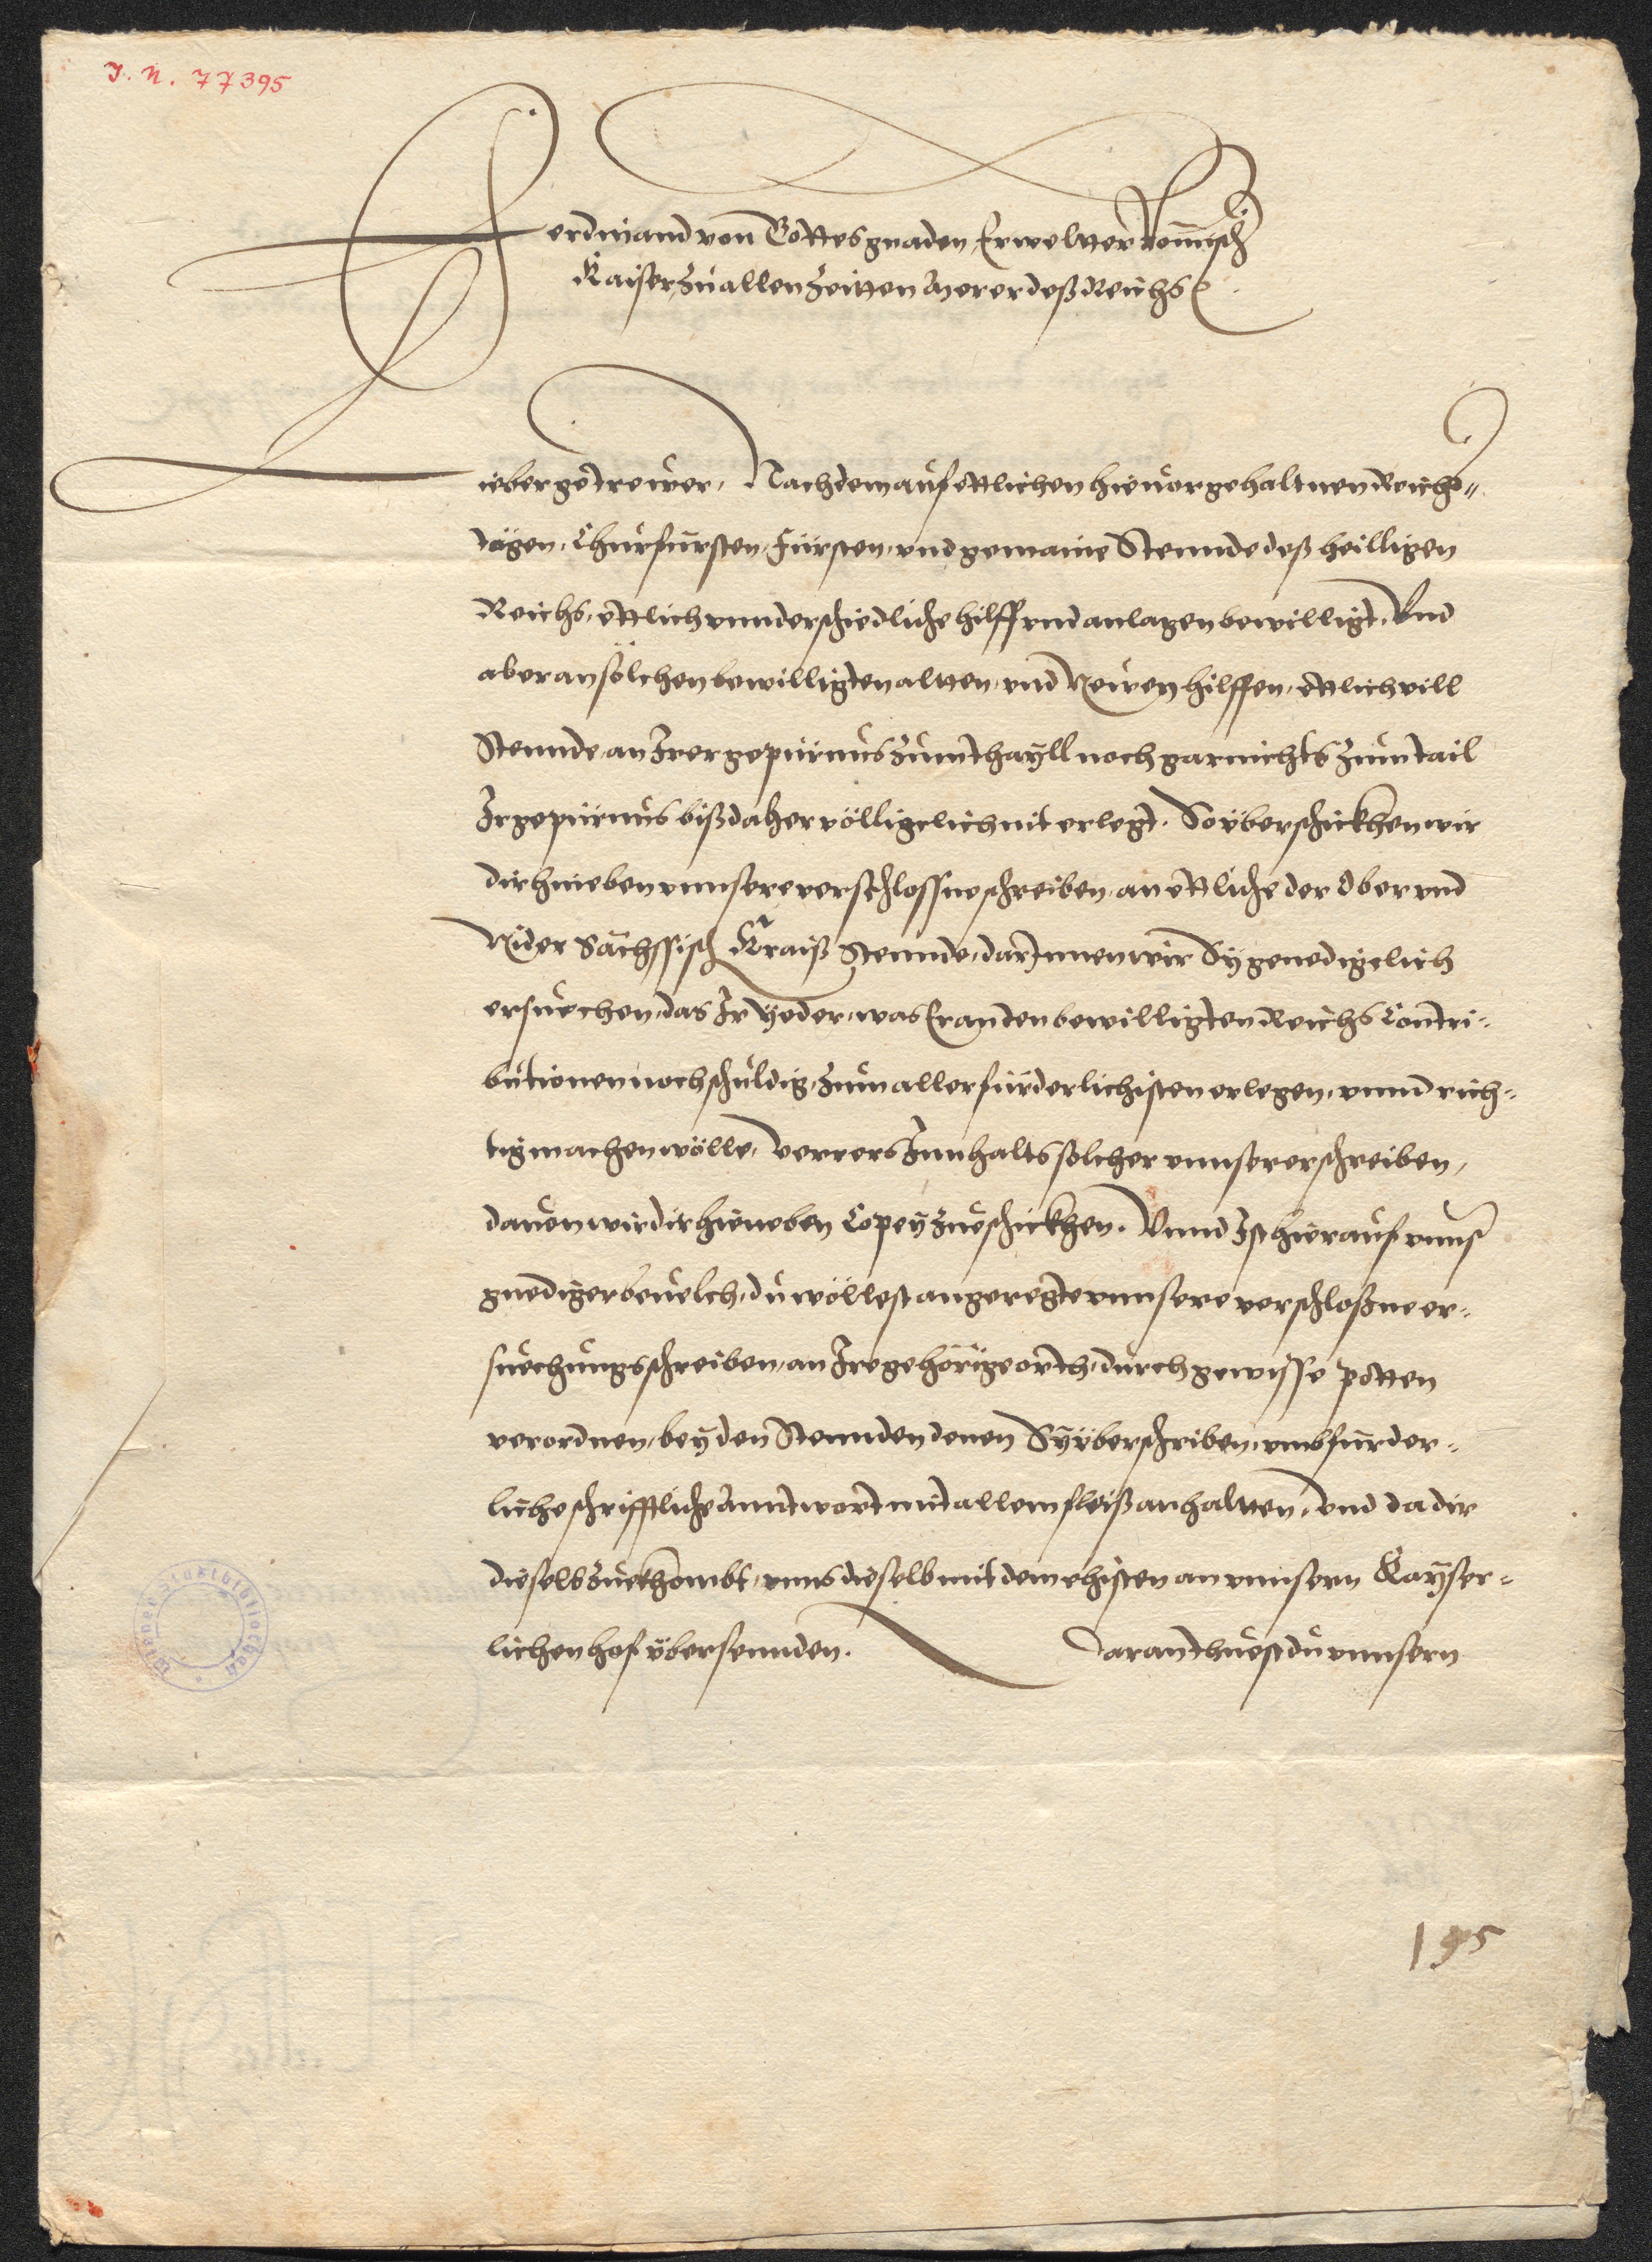 J. N. 77395
Ferdinand von Gottes gnaden Erwelter Römisch
Kaiser zu allen Zeitten Merer deß Reichs
Lieber getrewer, Nachdem auf ettlichen hieuor gehaltnen Reichs¬
dägen, Churfursten, Fürsten, vnd gemaine Stennde deß heilligen
Reichs, ettlich vnnderschiedliche hilff vnd anlagen bewilligt, Vnd
aber an sölchen bewilligten altten, vnd Newen hilffen, ettlich vill
Stennde, an Irer gepürnus zum thayll noch gar nichts zum tail
Ir gepürnus biß daher völligclich nit erlegt. So yberschickhen wir
dir hieneben vnnsere verschlossne schreiben, an ettliche der Ober vnd
Nider Sächssisch Kraiß Stennde, darInnen wir Sy genedigclich
ersuechen, das Ir Yeder, was Er an den bewilligten Reichs Contri¬
butionen noch schuldig, zum aller fürderlichisten erlegen, vnnd rich¬
tig machen wölle, verrers Innhalts solcher vnnserer schreiben,
dauon wir dir hieneben Copey zueschickhen. Vnnd Ist hierauf vnnser
gnediger beuelch, du wöllest angeregte vnnsere verschloßne er¬
suechungsschreiben, an Ire gehörige orth, durch gewisse potten
verordnen, bey den Stennden denen Sy yberschriben, vmb fürder¬
liche schrifftliche Anntwort mit allem fleiß anhaltten, Vnd da dir
dieselb zuekhombt, vnns dieselb mit dem ehisten an vnnsern Kayser¬
lichen hof ybersennden. Daran thuest du vnnsern
195
Wiener Stadtbibliothek